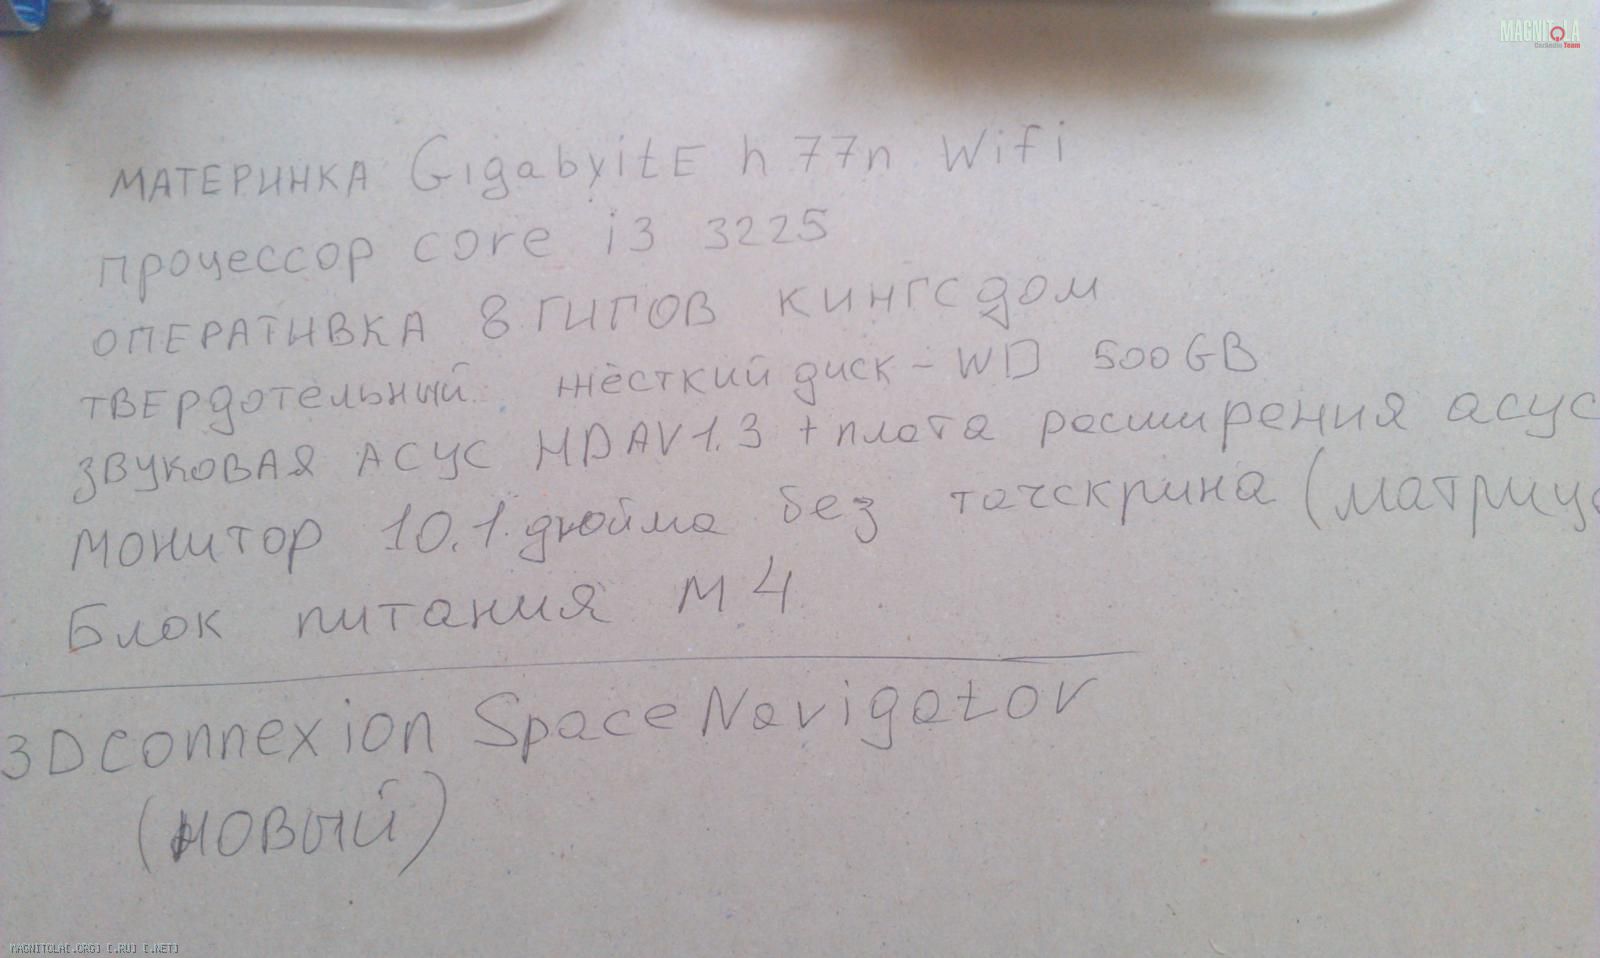 MAGNITOLA
CarAudio Team
МАТЕРИНКА GigabyitE h77n Wifi
процессор core i3 3225
ОПЕРАТИВКА 8 ГИГОВ КИНГСДОМ
твердотельный жёсткий диск - WD 500GB
ЗВУКОВАЯ АСУС HDAV1.3 + плата расширения асус
монитор 10.1 дюйма без тачскрина (матрица
Блок питания М4
3Dconnexion SpaceNavigator
(новый)
MAGNITOLA[.ORG] [.RU] [.NET]